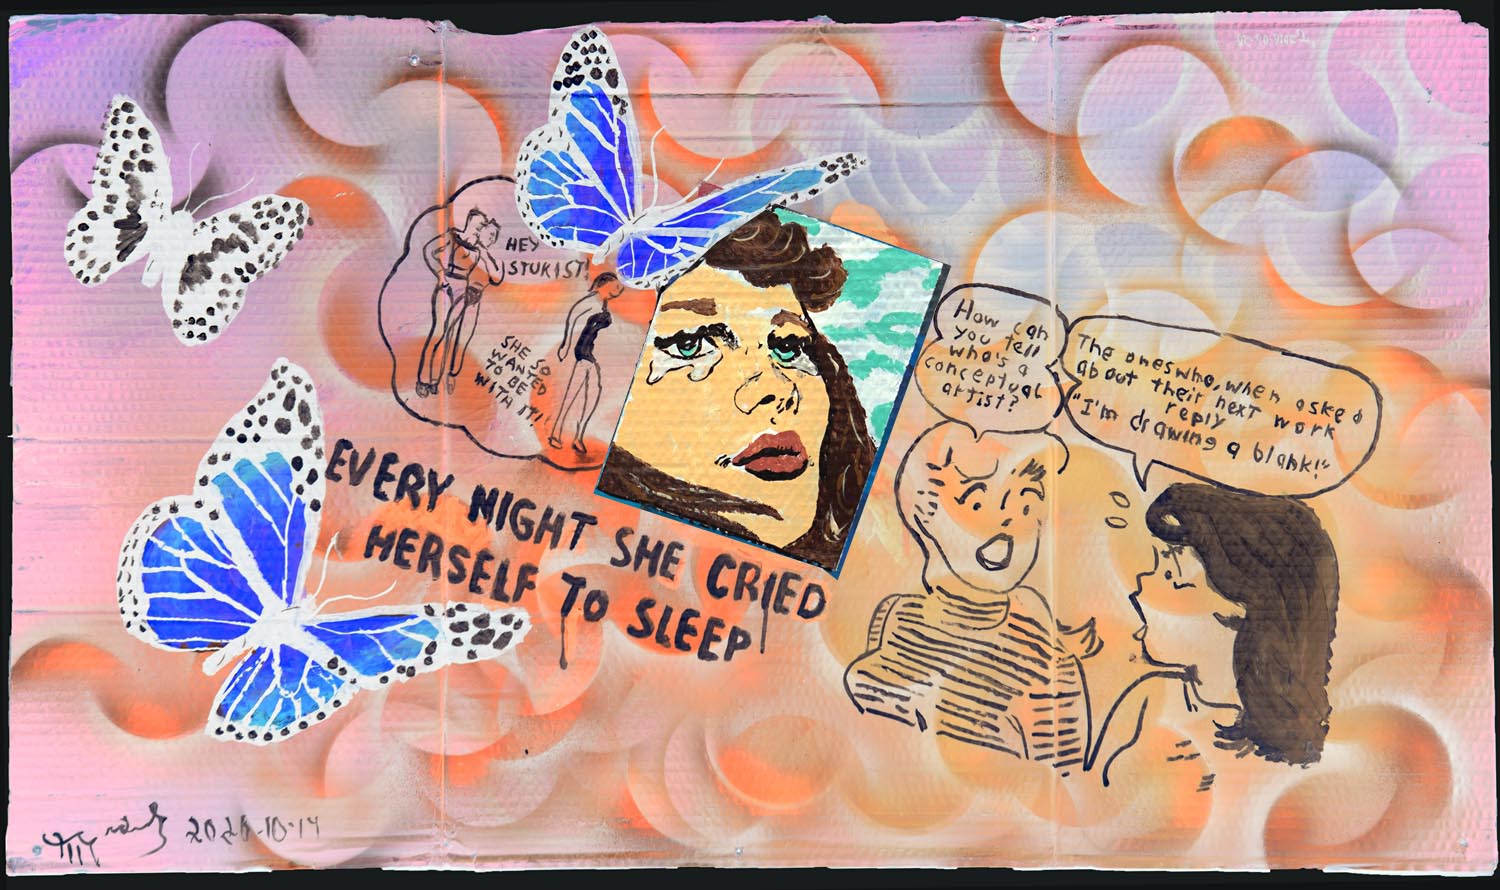 HEY
STUKIST!
SHE SO
WANTED
TO BE
WITH IT!!
EVERY NIGHT SHE CRIED
HERSELF TO SLEEP
How can
you tell
who's a
conceptual
artist?
The ones who, when asked
about their next work
reply
"I'm drawing a blank!"
2020-10-14